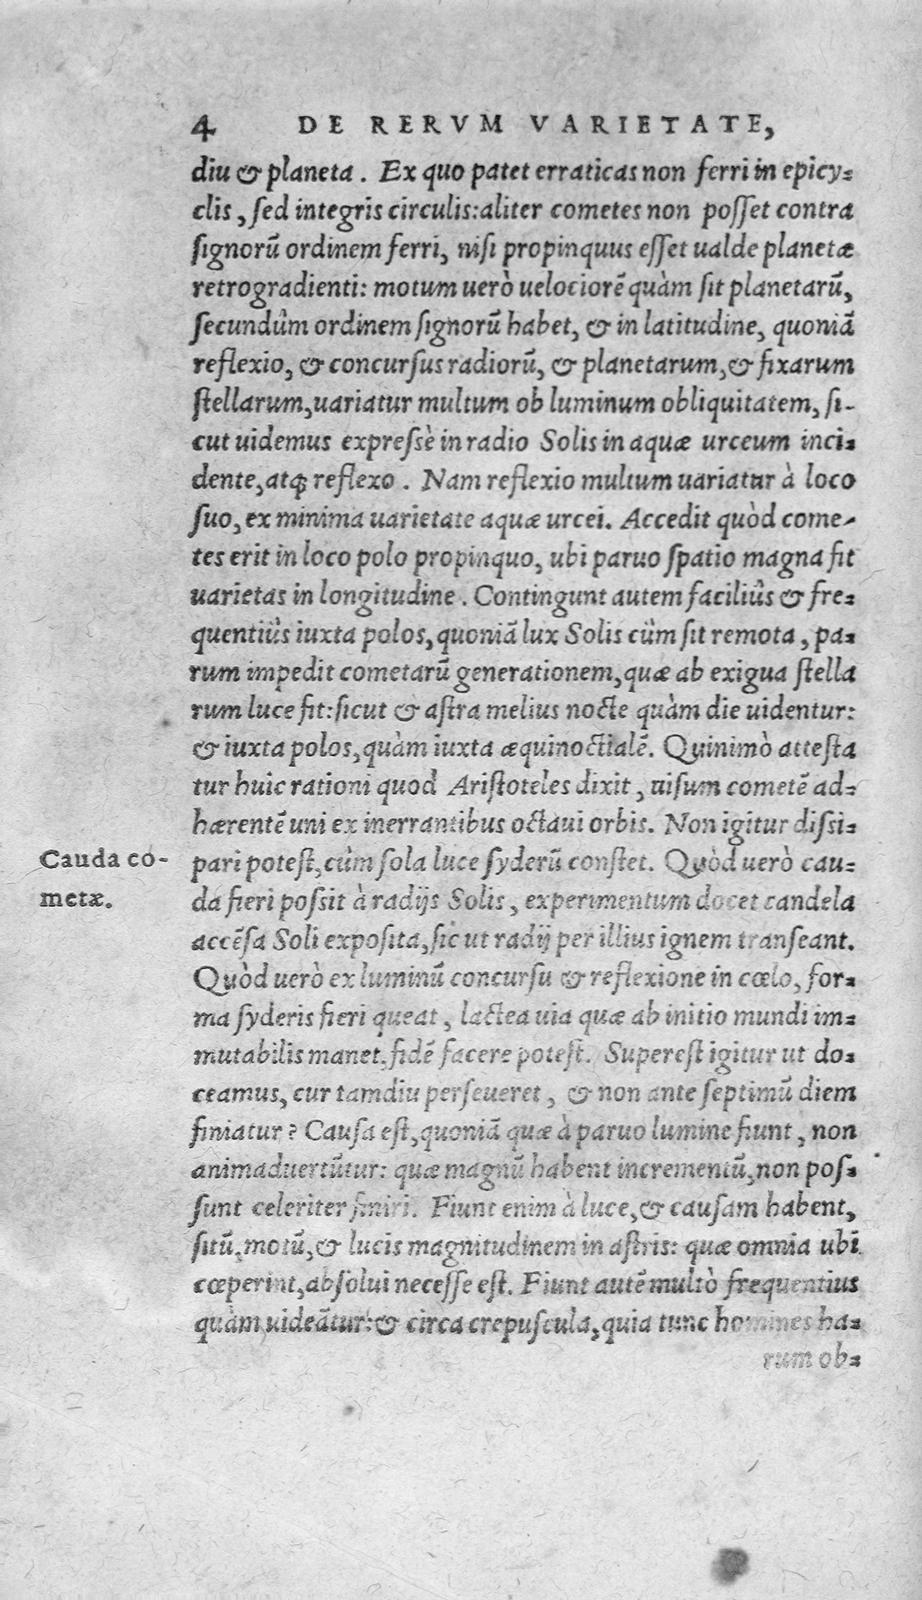 4 DE RERVM VARIETATE,
diu & planeta. Ex quo patet erraticas non ferri in epicy-
clis, ſed integris circulis: aliter cometes non poſſet contra
ſignorũ ordinem ferri, niſi propinquus eſſet ualde planetæ
retrogradienti: motum uerò uelociorẽ quàm ſit planetarũ,
ſecundûm ordinem ſignorũ habet, & in latitudine, quoniã
reflexio, & concurſus radiorũ, & planetarum, & fixarum
ſtellarum, uariatur multum ob luminum obliquitatem, ſi-
cut uidemus expreſsè in radio Solis in aquæ urceum inci-
dente, atq; reflexo. Nam reflexio multum uariatur à loco
ſuo, ex minima uarietate aquæ urcei. Accedit quòd come-
tes erit in loco polo propinquo, ubi paruo ſpatio magna fit
uarietas in longitudine. Contingunt autem faciliûs & fre-
quentiûs iuxta polos, quoniã lux Solis cûm ſit remota, pa-
rum impedit cometarũ generationem, quæ ab exigua ſtella
rum luce fit: ſicut & aſtra melius nocte quàm die uidentur:
& iuxta polos, quàm iuxta æquinoctialẽ. Quinimò atteſta
tur huic rationi quod Ariſtoteles dixit, uiſum cometẽ ad-
hærentẽ uni ex inerrantibus octaui orbis. Non igitur diſsi-
Cauda co-
metæ.
pari poteſt, cûm ſola luce ſyderũ conſtet. Quòd uerò cau-
da fieri poſsit à radijs Solis, experimentum docet candela
accẽſa Soli expoſita, ſic ut radij per illius ignem tranſeant.
Quòd uerò ex luminũ concurſu & reflexione in cœlo, for-
ma ſyderis fieri queat, lactea uia quæ ab initio mundi im-
mutabilis manet, fidẽ facere poteſt. Supereſt igitur ut do-
ceamus, cur tamdiu perſeueret, & non ante ſeptimũ diem
finiatur? Cauſa eſt, quoniã quæ à paruo lumine fiunt, non
animaduertũtur: quæ magnũ habent incrementũ, non poſ-
ſunt celeriter finiri. Fiunt enim à luce, & cauſam habent,
ſitũ, motũ, & lucis magnitudinem in aſtris: quæ omnia ubi
cœperint, abſolui neceſſe eſt. Fiunt autẽ multò frequentius
quàm uideãtur: & circa crepuſcula, quia tunc homines ha-
rum ob-